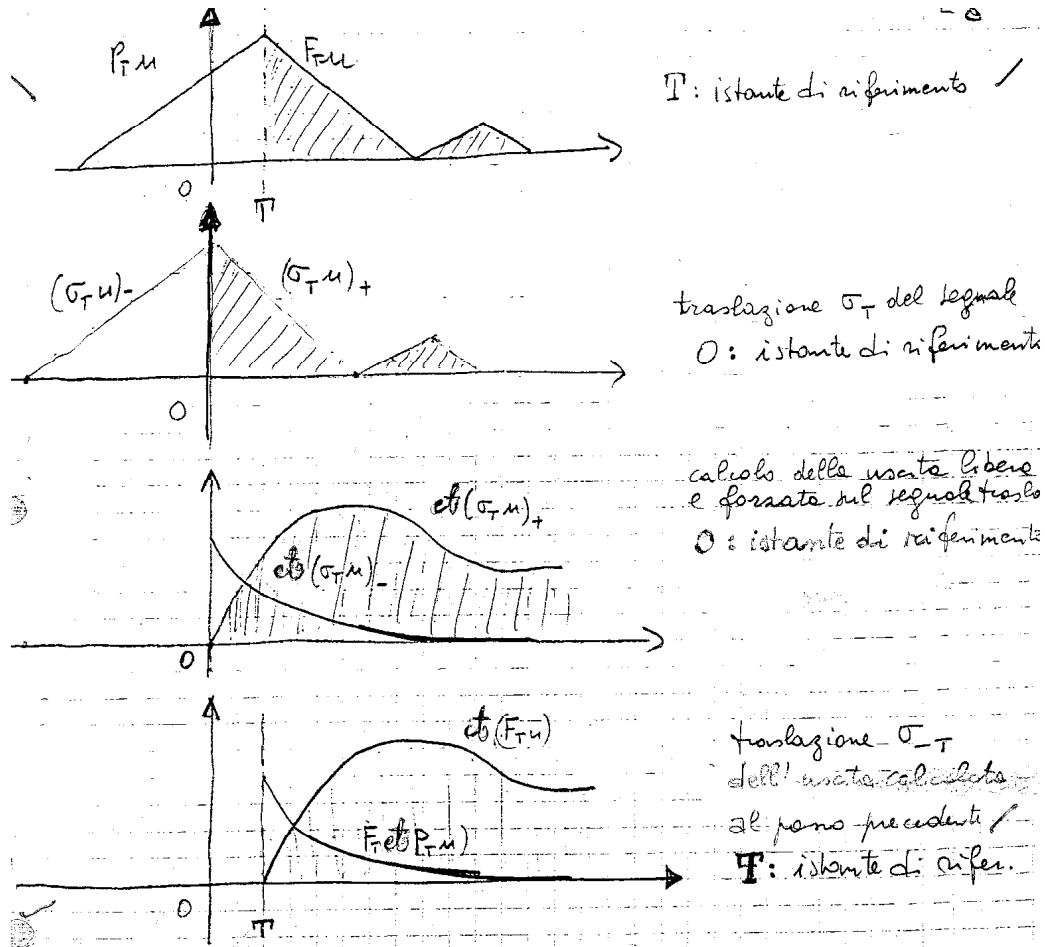 P_T u
F_T u
T: istante di riferimento
O
T
(σ_T u)_-
(σ_T u)_+
traslazione σ_T del segnale
O: istante di riferimento
O
calcolo della uscita libera
e forzata sul segnale traslo
O: istante di riferimento
(σ_T u)_+
(σ_T u)_-
O
(F_T u)
traslazione σ_-T
dell'uscita calcolata
al passo precedente
F_T
(P_T u)
T: istante di rifer.
O
T